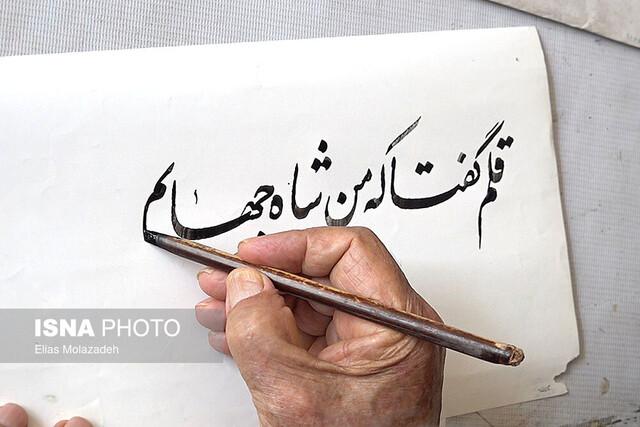 قلم گفتا که من شاه جهانم
ISNA PHOTO
Elias Molazadeh